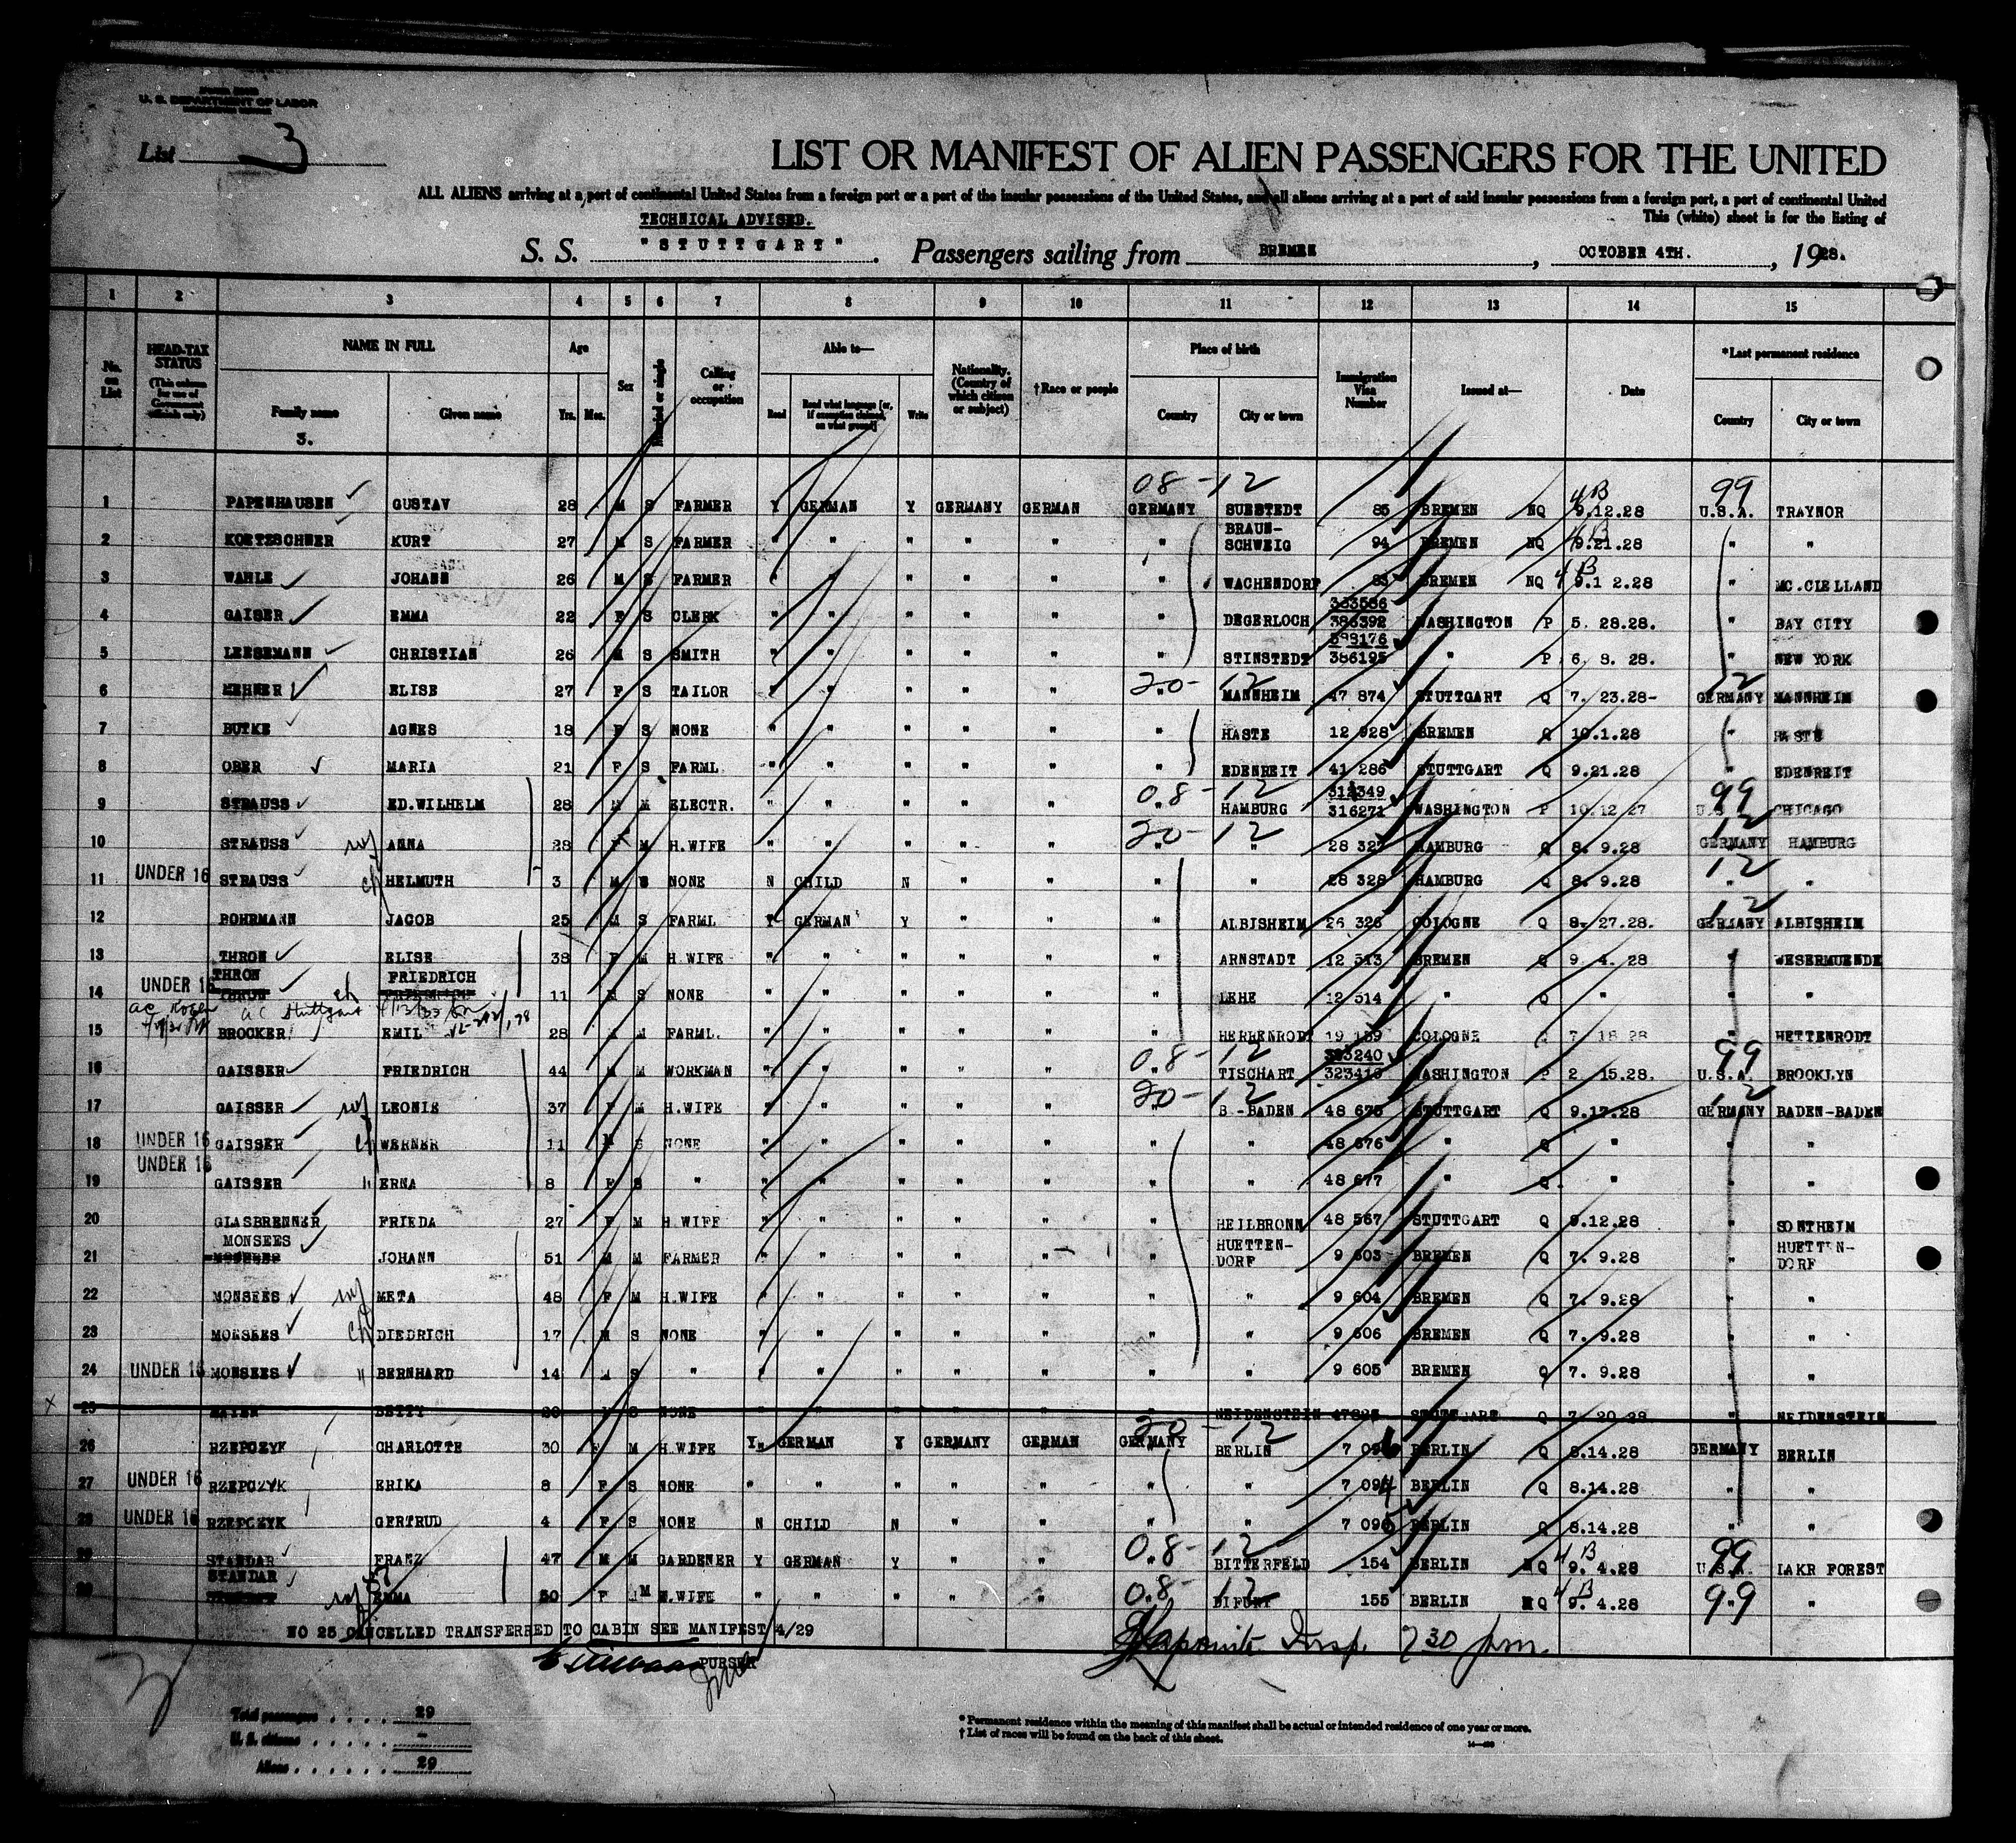 U. S. DEPARTMENT OF LABOR
List 3
LIST OR MANIFEST OF ALIEN PASSENGERS FOR THE UNITED
ALL ALIENS arriving at a port of continental United States from a foreign port or a port of the insular possessions of the United States, and all aliens arriving at a port of said insular possessions from a foreign port, a port of continental United
This (white) sheet is for the listing of
TECHNICAL ADVISED.
S. S. "STUTTGART". Passengers sailing from BREMEN, OCTOBER 4TH., 1928.
1 2 3 4 5 6 7 8 9 10 11 12 13 14 15
No. on List
HEAD-TAX STATUS (This column for use of Government officials only)
NAME IN FULL Family name Given name
3.
Age Yrs. Mos.
Sex
Married or single
Calling or occupation
Able to— Read Read what language [or, if exemption claimed, on what ground] Write
Nationality. (Country of which citizen or subject)
†Race or people
Place of birth Country City or town
Immigration Visa Number
Issued at—
Date
*Last permanent residence Country City or town
08-12 4B 99
1 PAPENHAUSEN GUSTAV 28 M S FARMER Y GERMAN Y GERMANY GERMAN GERMANY SUESTEDT 85 BREMEN NQ 9.12.28 U.S.A. TRAYNOR
2 KOETZSCHNER KURT 27 M S FARMER " " " " " " BRAUN-SCHWEIG 94 BREMEN NQ 9.21.28 " "
3 WAHLE JOHANN 26 M S FARMER " " " " " " WACHENDORF 83 BREMEN NQ 4B 9.1 2.28 " MC.CLELLAND
4 GAISER EMMA 22 F S CLERK " " " " " " DEGERLOCH 386392 WASHINGTON P 5. 28.28. " BAY CITY
5 CHRISTIAN 26 M S SMITH " " " " " " STINSTEDT 386195 " P 6. 8. 28. " NEW YORK
20-12 12
6 MEHNER ELISE 27 F S TAILOR " " " " " " MANNHEIM 47 874 STUTTGART Q 7. 23.28- GERMANY MANNHEIM
7 BUTKE AGNES 18 F S NONE " " " " " " HASTE 12 928 BREMEN Q 10.1.28 " HASTE
8 OBER MARIA 21 F S FARML " " " " " " EDENREIT 41 286 STUTTGART Q 9.21.28 " EDENREIT
08-12 99
9 STRAUSS ED.WILHELM 28 M M ELECTR. " " " " " " HAMBURG 312349 316271 WASHINGTON P 10.12.27 U.S. CHICAGO
20-12 12
10 STRAUSS wf ANNA 28 F M H.WIFE " " " " " " " 28 327 HAMBURG Q 8. 9.28 GERMANY HAMBURG
11 UNDER 16 STRAUSS ch HELMUTH 3 M S NONE N CHILD N " " " " 28 328 HAMBURG Q 8. 9.28 12 "
12 JACOB 25 M S FARML Y GERMAN Y " " " ALBISHEIM 26 326 COLOGNE Q 8. 27.28. 12 GERMANY ALBISHEIM
13 THRON ELISE 38 F M H.WIFE " " " " " " ARNSTADT 12 513 BREMEN Q 9. 4. 28 " WESERMUENDE
14 UNDER 16 THRON ch FRIEDRICH 11 M S NONE " " " " " " LEHE 12 514 " Q " " "
15 BROCKER EMIL 28 M M FARML. " " " " " " HERRENRODT 19 159 COLOGNE Q 7. 18 28 " HETTENRODT
08-12 99
16 GAISSER FRIEDRICH 44 M M WORKMAN " " " " " " TISCHART WASHINGTON P 2. 15.28. U.S.A. BROOKLYN
20-12 12
17 GAISSER wf LEONIE 37 F M H.WIFE " " " " " " B.-BADEN 48 675 STUTTGART Q 9.17.28 GERMANY BADEN-BADEN
18 UNDER 16 GAISSER ch WERNER 11 M S NONE " " " " " " " 48 676 " Q " " "
19 UNDER 16 GAISSER " ERNA 8 F S " " " " " " " " 48 677 " Q " " "
20 GLASBRENNER FRIEDA 27 F M H.WIFE " " " " " " HEILBRONN 48 567 STUTTGART Q 9.12.28 " SONTHEIM
21 MONSEES JOHANN 51 M M FARMER " " " " " " HUETTEN-DORF 9 603 BREMEN Q 7. 9.28 " HUETTEN-DORF
22 MONSEES wf META 48 F M H.WIFE " " " " " " " 9 604 BREMEN Q 7. 9.28 " "
23 MONSEES ch DIEDRICH 17 M S NONE " " " " " " " 9 606 BREMEN Q 7. 9.28 " "
24 UNDER 16 MONSEES " BERNHARD 14 M S " " " " " " " " 9 605 BREMEN Q 7. 9.28 " "
25 BETTY S NONE " " " " " " NEIDENSTEIN STUTTGART Q 7.20.28 " NEIDENSTEIN
20-12
26 RZEPCZYK CHARLOTTE 30 F M H.WIFE Y GERMAN Y GERMANY GERMAN GERMANY BERLIN BERLIN Q 8.14.28 GERMANY BERLIN
27 UNDER 16 RZEPCZYK ERIKA 8 F S NONE " " " " " " " 7 094 BERLIN Q 8.14.28 " "
28 UNDER 16 RZEPCZYK GERTRUD 4 F S NONE N CHILD N " " " " 7 095 BERLIN Q 8.14.28 " "
08-12 4B 99
29 STANDAR FRANZ 47 M M GARDENER Y GERMAN Y " " " BITTERFELD 154 BERLIN NQ 9. 4.28 U.S.A. LAKR FOREST
08-12 4B 99
30 STANDAR wf EMMA 50 F M H.WIFE " " " " " " 155 BERLIN NQ 9. 4.28 "
NO 25 CANCELLED TRANSFERRED TO CABIN SEE MANIFEST 4/29
PURSER
Insp. 7 30 pm.
Total passengers . . . . 29
U. S. citizens . . . . . -
Aliens . . . . . . 29
* Permanent residence within the meaning of this manifest shall be actual or intended residence of one year or more.
† List of races will be found on the back of this sheet.